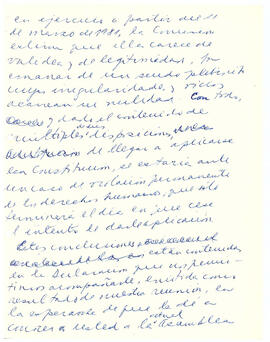 en ejercicio a partir del 11
de marzo de 1981, la Comisión
estima que ella carece de
validez y de legitimidad, por
emanar de un seudo plebiscito
cuyas irregularidades y vicios
acarrean su nulidad. Con todo,
y dado el contenido de
múltiples disposiciones,
de llegar a aplicarse
esa Constitución, se estaría ante
un caso de violación permanente
de los derechos humanos, que sólo
terminará el día en que cese
el intento de darle aplicación
Estas conclusiones
están contenidas
en la Declaración que nos permi-
timos acompañarle, emitida como
resultado de nuestra reunión, en
la esperanza de que la dé a
conocer a usted a la actual Asamblea